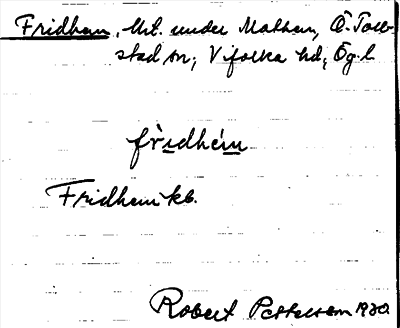 Fridhem, lht. under Mathem, Ö. Toll-
stad sn, Vifolka hd, Ög. l.
fri̲dhém̲
Fridhem kb.
Robert Pettersson 1930.